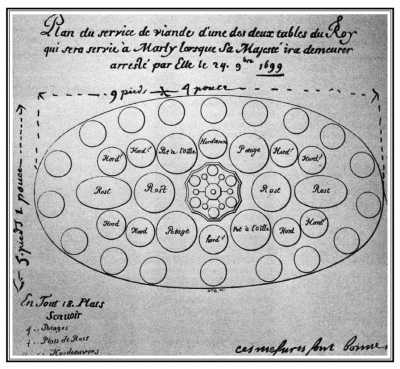 Plan du service de viande d'une des deux tables du Roy
qui sera servie à Marly lorsque Sa Majesté ira demeurer
arresté par Elle le 24. 9bre 1699
9 pieds 4 pouce
5 pieds 2 pouce
Hord.
Hord.t
Pot à l'oille
Hordœuvre
Potage
Hord.t
Hord.t
Rost
Rost
Rost
Rost
Hord
Hord
Potage
hord.t
Pot à l'oille
Hord
Hord.t
En Tout 18. Plats
Scavoir
4.. Potages
Plats de Rost
Hordœuvres
ces mesures sont bonnes